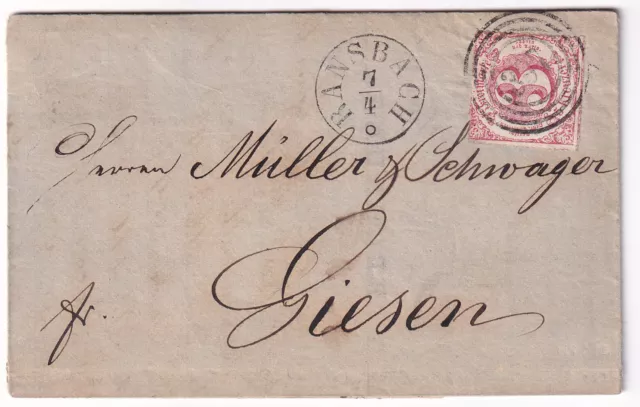 RANSBACH
7
4
3
Herren Müller & Schwager
fr.
Giesen